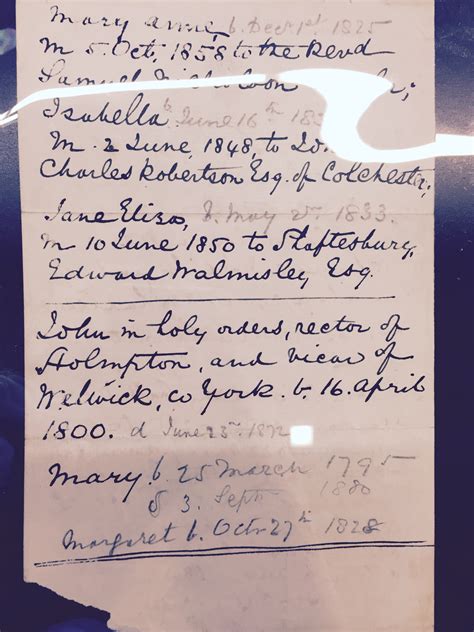 Mary anne, b. Decr 1st 1825
m 5. Oct, 1858 to the Revd
Samuel
Isabella b. June 16th
m. 2 June, 1848, to
Charles Robertson Esq. of Colchester,
Jane Eliza, b. May 1833.
m 10 June 1850 to Shaftesbury,
Edward Walmisley Esq.
John in holy orders, rector of
Holmpton, and vicar of
Welwick, co York. b. 16. april
1800. d June 23rd. 1872
Mary. b. 25 March 1795
d 3. Sept 1880
Margaret b. Octr 27th 1828